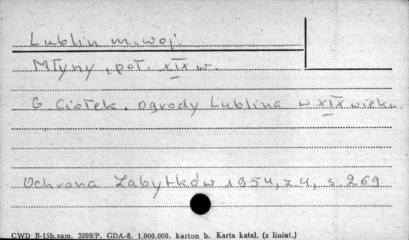 Lublin m. woj.
Młyny, poł. XIX w.
G. Ciołek. Ogrody Lublina w XIX wieku.
Ochrona Zabytków 1954, z 4, s 269
CWD B-15b.zam. 2899/P. GDA-8. 1.000.000. karton b. Karta katal. (z liniat.)